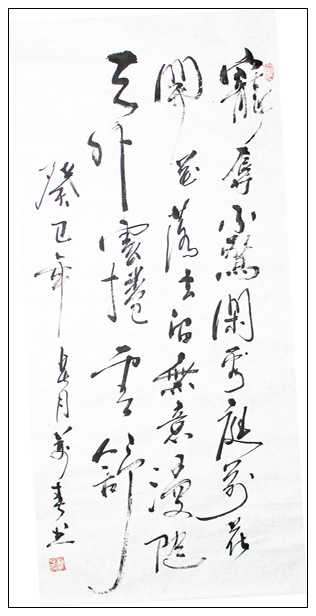 寵辱不驚閑看庭前花
開花落去留無意漫隨
天外雲捲雲舒
癸巳年春月萬春书